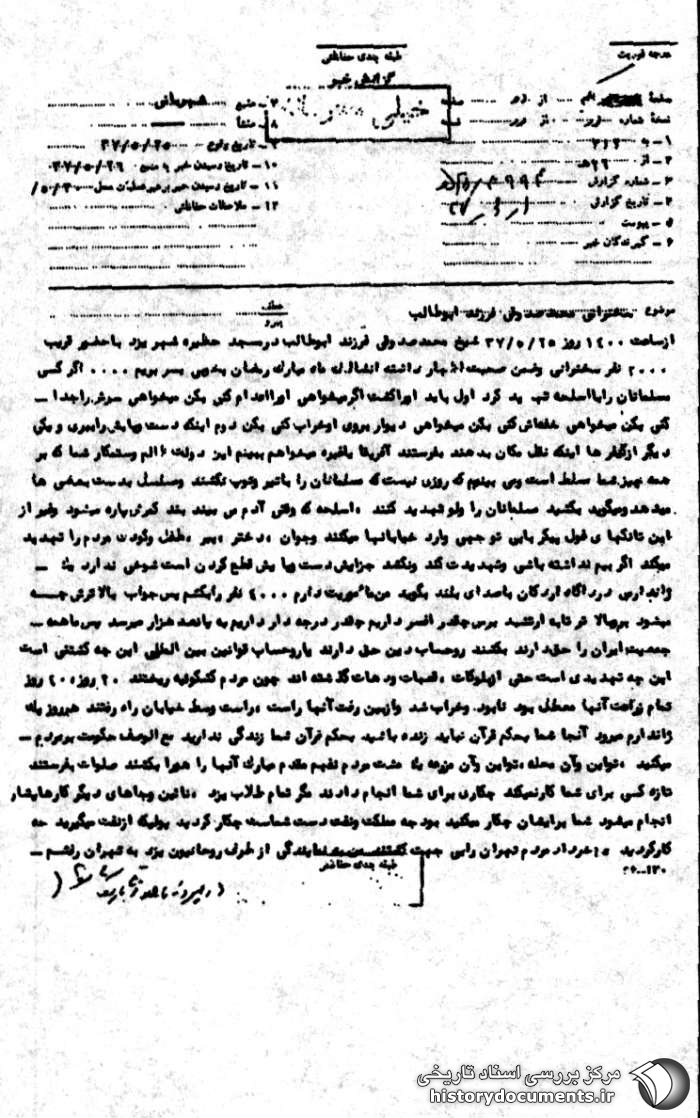 درجه فوریت
طبقه بندی حفاظتی
گزارش خبر
خیلی محرمانه
صفحه یکم از دو صفحه
نسخه شماره از
۱ـ به ۳۱۲
۲ـ از ۲۶ ه‍
۳ـ شماره گزارش
۴ـ تاریخ گزارش
۵ـ پیوست
۶ـ گیرندگان خبر
۷ـ منبع شهربانی
۸ـ منشا
۹ـ تاریخ وقوع ۳۷/۵/۲۵
۱۰ـ تاریخ رسیدن خبر به منبع ۳۷/۵/۲۶
۱۱ـ تاریخ رسیدن خبر برهبر عملیات محل ۳۰/۵/
۱۲ـ ملاحظات حفاظتی
موضوع سخنرانی محمد صدوقی فرزند ابوطالب
عطف
پیرو
ازساعت ۱۴۰۰ روز ۳۷/۵/۲۵ شیخ محمد صدوقی فرزند ابوطالب درمسجد حظیره شهر یزد باحضور قریب
۲۰۰۰ نفر سخنرانی وضمن صحبت اظهار داشته انشااله ماه مبارک رمضان بخوبی بسر بریم ۰۰۰۰ اگر کسی
مسلمانان راباسلحه تهدید کرد اول باید اوراکشت اگر میخواهی اورااعدام کنی بکن میخواهی سرش راجدا ـ
کنی بکن میخواهی خفه‌اش کنی بکن میخواهی دیوار بروی اوخراب کنی بکن دوم اینکه دست وپایش راببری و یکی
دیگر ازکیفر ها اینکه نقل مکان بدهند بفرستند آفریقا یاغیره میخواهم ببینم این دولت ظالم وستمکار شما که بر
همه چیز شما مسلط است ومی بینیم که روزی نیست که مسلمانان را باتیر وتوپ نکشند ومسلسل بدست بعضی ها
میدهد ومیگوید بکشید مسلمانان را ولو تهدید کنند ، اسلحه که وقتی آدم می بیند بند کمرش پاره میشود وغیر از
این تانکهای غول پیکر بابی توجهی وارد خیابانها میکنند وجوان ، دختر ، پیر ، طفل وکودک مردم را تهدید
میکند اگر بیم نداشته باشی وتهدیدت کند ونکشد جزایش دست وپایش قطع کردن است شوخی ندارد یک ـ
ژاندارمی درزادگاه اردکان باصدای بلند بگوید من ماموریت دارم ۴۰۰۰ نفر رابکشم پس جواب بالاترش چه
میشود بروبالا تر تا به ارتشبد برس چقدر افسر داریم چقدر درجه دار داریم به پانصد هزار میرسد پس ماهمه ـ
جمعیت ایران را حق دارند بکشند روحساب دین حق دارند یاروحساب قوانین بین المللی این چه کشتنی است
این چه تهدیدی است حتی ازبلوکات ، قصبات ودهات گذشته اند چون مردم کشکوئیه ریختند ۲۰ روز ، ۴۰ روز
تمام زراعت آنها معطل بود نابود وخراب شد وازبین رفت آنها راست ، راست وسط خیابان راه رفتند هرروز یک
ژاندارم میرود آنجا شما بحکم قرآن نباید زنده باشید بحکم قرآن شما زندگی ندارید مع الوصف حکومت برمردم ـ
میکنید ، تواین وآن محله ، تواین وآن مزرعه یک مشت مردم نفهم مقدم مبارک آنها را هورا بکشند صلوات بفرستند
تازه کسی برای شما کارنمیکند چکاری برای شما انجام دادند مگر تمام طلاب یزد ، نائین وجاهای دیگر کارهایشان
انجام میشود شما برایشان چکار میکنید بودجه مملکت ونفت دست شماست چکار کردید پولیکه ازنفت میگیرید چه
کارکردید ۱۵ خرداد مردم تهران رابی جهت کشتند من به نمایندگی از طرف روحانیون یزد به تهران رفتم ـ
۲۶ـ۱۳۰
طبقه بندی حفاظتی
مرکز بررسی اسناد تاریخی
historydocuments.ir